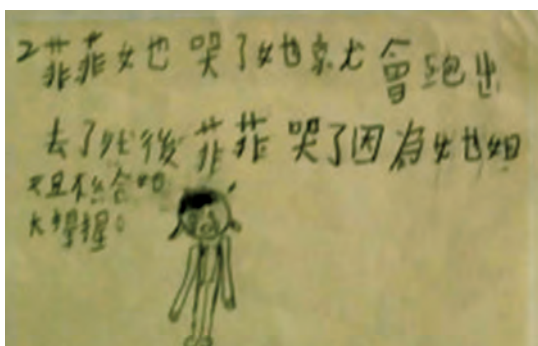 2菲菲她哭了她就會跑出
去了然後菲菲哭了因為她姐
姐不給她
大猩猩。